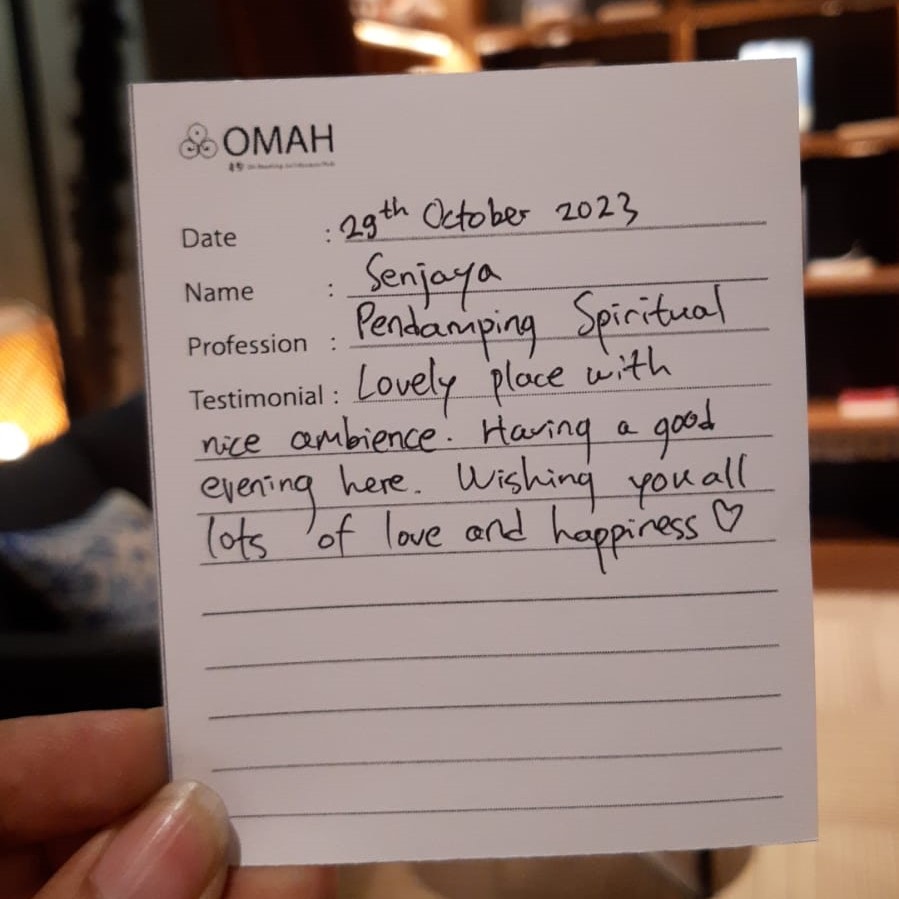 OMAH
Date : 29th October 2023
Name : Senjaya
Profession : Pendamping Spiritual
Testimonial : Lovely place with
nice ambience. Having a good
evening here. Wishing you all
lots of love and happiness ♡